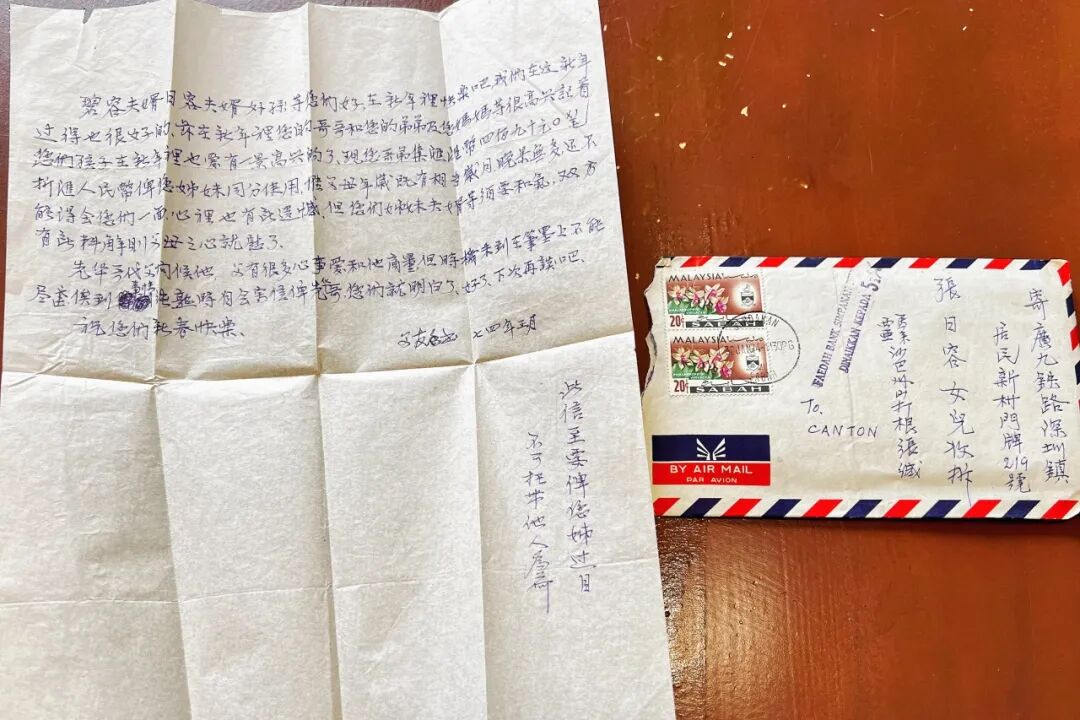 碧容夫婿日容夫婿好孫等您們好、在新年裡快樂吧我們在这新年
过得也很好的、亦在新年裡您的哥哥和您的弟弟及您媽媽等很高兴記着
您們孩子在新年裡也要有一景高兴的了、現您弟集匯港幣四佰九十元0
折匯人民幣俾您姊妹同分使用、父母年歲既有相当歲月晚景無多还不
能得会您們一面心裡也有些遺憾、但您們姊妹夫婿等須要和氣、双方
有諒解則父母之心就慰了、
先華父问候他、父有很多心事爱和他商量但時機未到在筆墨上不能
尽盡俟到時自会寄信俾先哥、您們就明白了、好了下次再談吧、
祝您們新春快樂、
父友 七四年元月
此信至要俾您姊过目
不可托帶他人
MALAYSIA
20¢
SABAH
MALAYSIA
20¢
SABAH
FAEDAH BANK SIMPANAN
DINAIKKAN KEPADA 5
TO,
CANTON
BY AIR MAIL
PAR AVION
寄廣九鉄路深圳鎮
居民新村門牌219號
張日容女兒收拆
馬來西亞沙巴州山打根張緘